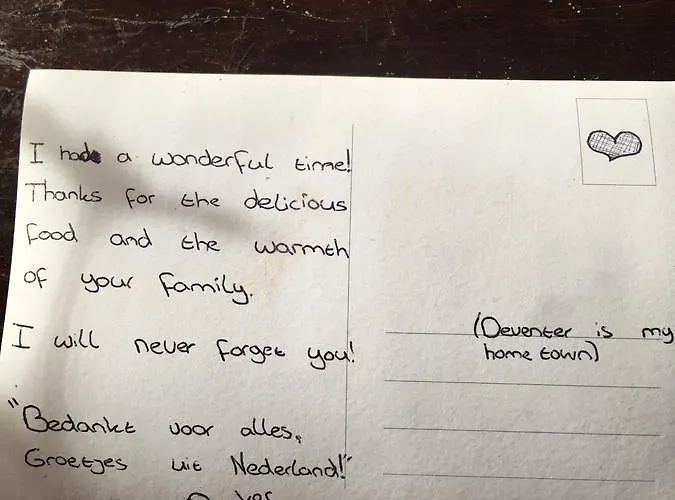 I had a wonderful time!
Thanks for the delicious
food and the warmth
of your family.
I will never forget you!
"Bedankt voor alles,
Groetjes uit Nederland!"
(Deventer is my
home town)